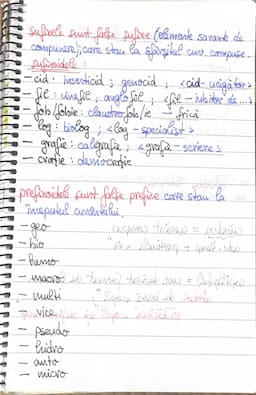 sufixele sunt false sufixe (elemente savante de
compunere), care stau la sfârșitul cuv. compuse.
sufixoidele:
- cid: insecticid; genocid, <cid - ucigător>
- fil: cinefil, anglofil; <fil - iubitor de...>
- fob/fobie: claustrofob/ie → frică
- log: biolog, <log - specialist>
- grafie: caligrafie, <grafie - scriere>
- crație: democrație
prefixoidele sunt false prefixe care stau la
începutul cuvântului.
- geo
- bio
- homo
- macro
- multi
- vice
- pseudo
- hidro
- auto
- micro